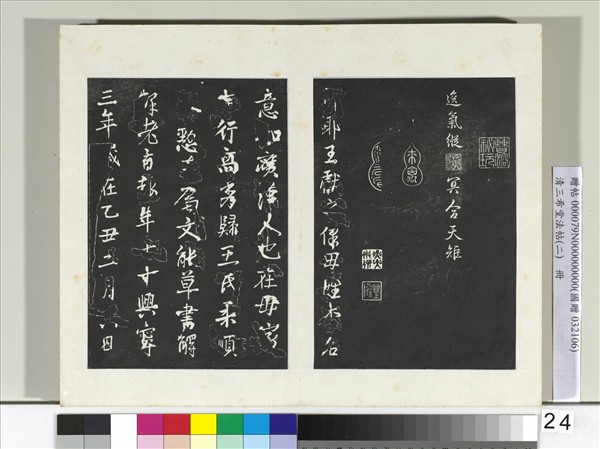 逸氣縱 冥合天
耶王獻之保母姓李名
意如廣漢人也在母家
志行高秀歸王氏柔順
恭懃善屬文能草書解
釋老旨趣年七十興寧
三年歲在乙丑二月六日
贈帖 000079N000000000(國贈 032106)
清三希堂法帖(二) 冊
24